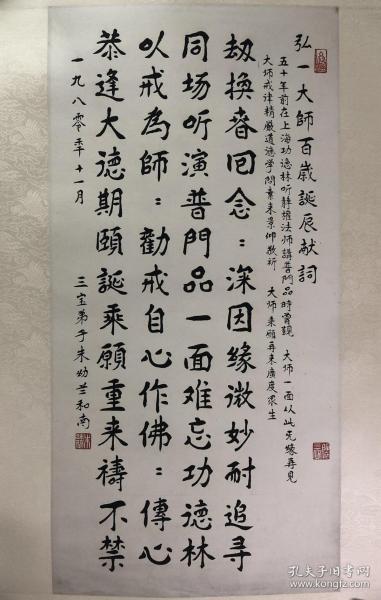 弘一大師百歲誕辰献詞
五十年前在上海功德林听静權法师講普門品時曾覲 大师一面以此先緣再見
大师戒律精嚴道德学問素来景仰敬祈 大师乘願再来廣度众生
劫換春回念:深因緣微妙耐追寻
同场听演普門品一面难忘功德林
以戒為師:勸戒自心作佛:傳心
恭逢大德期頤誕乘願重来禱不禁
一九八零年十一月
三宝弟子朱幼兰和南
孔夫子旧书网